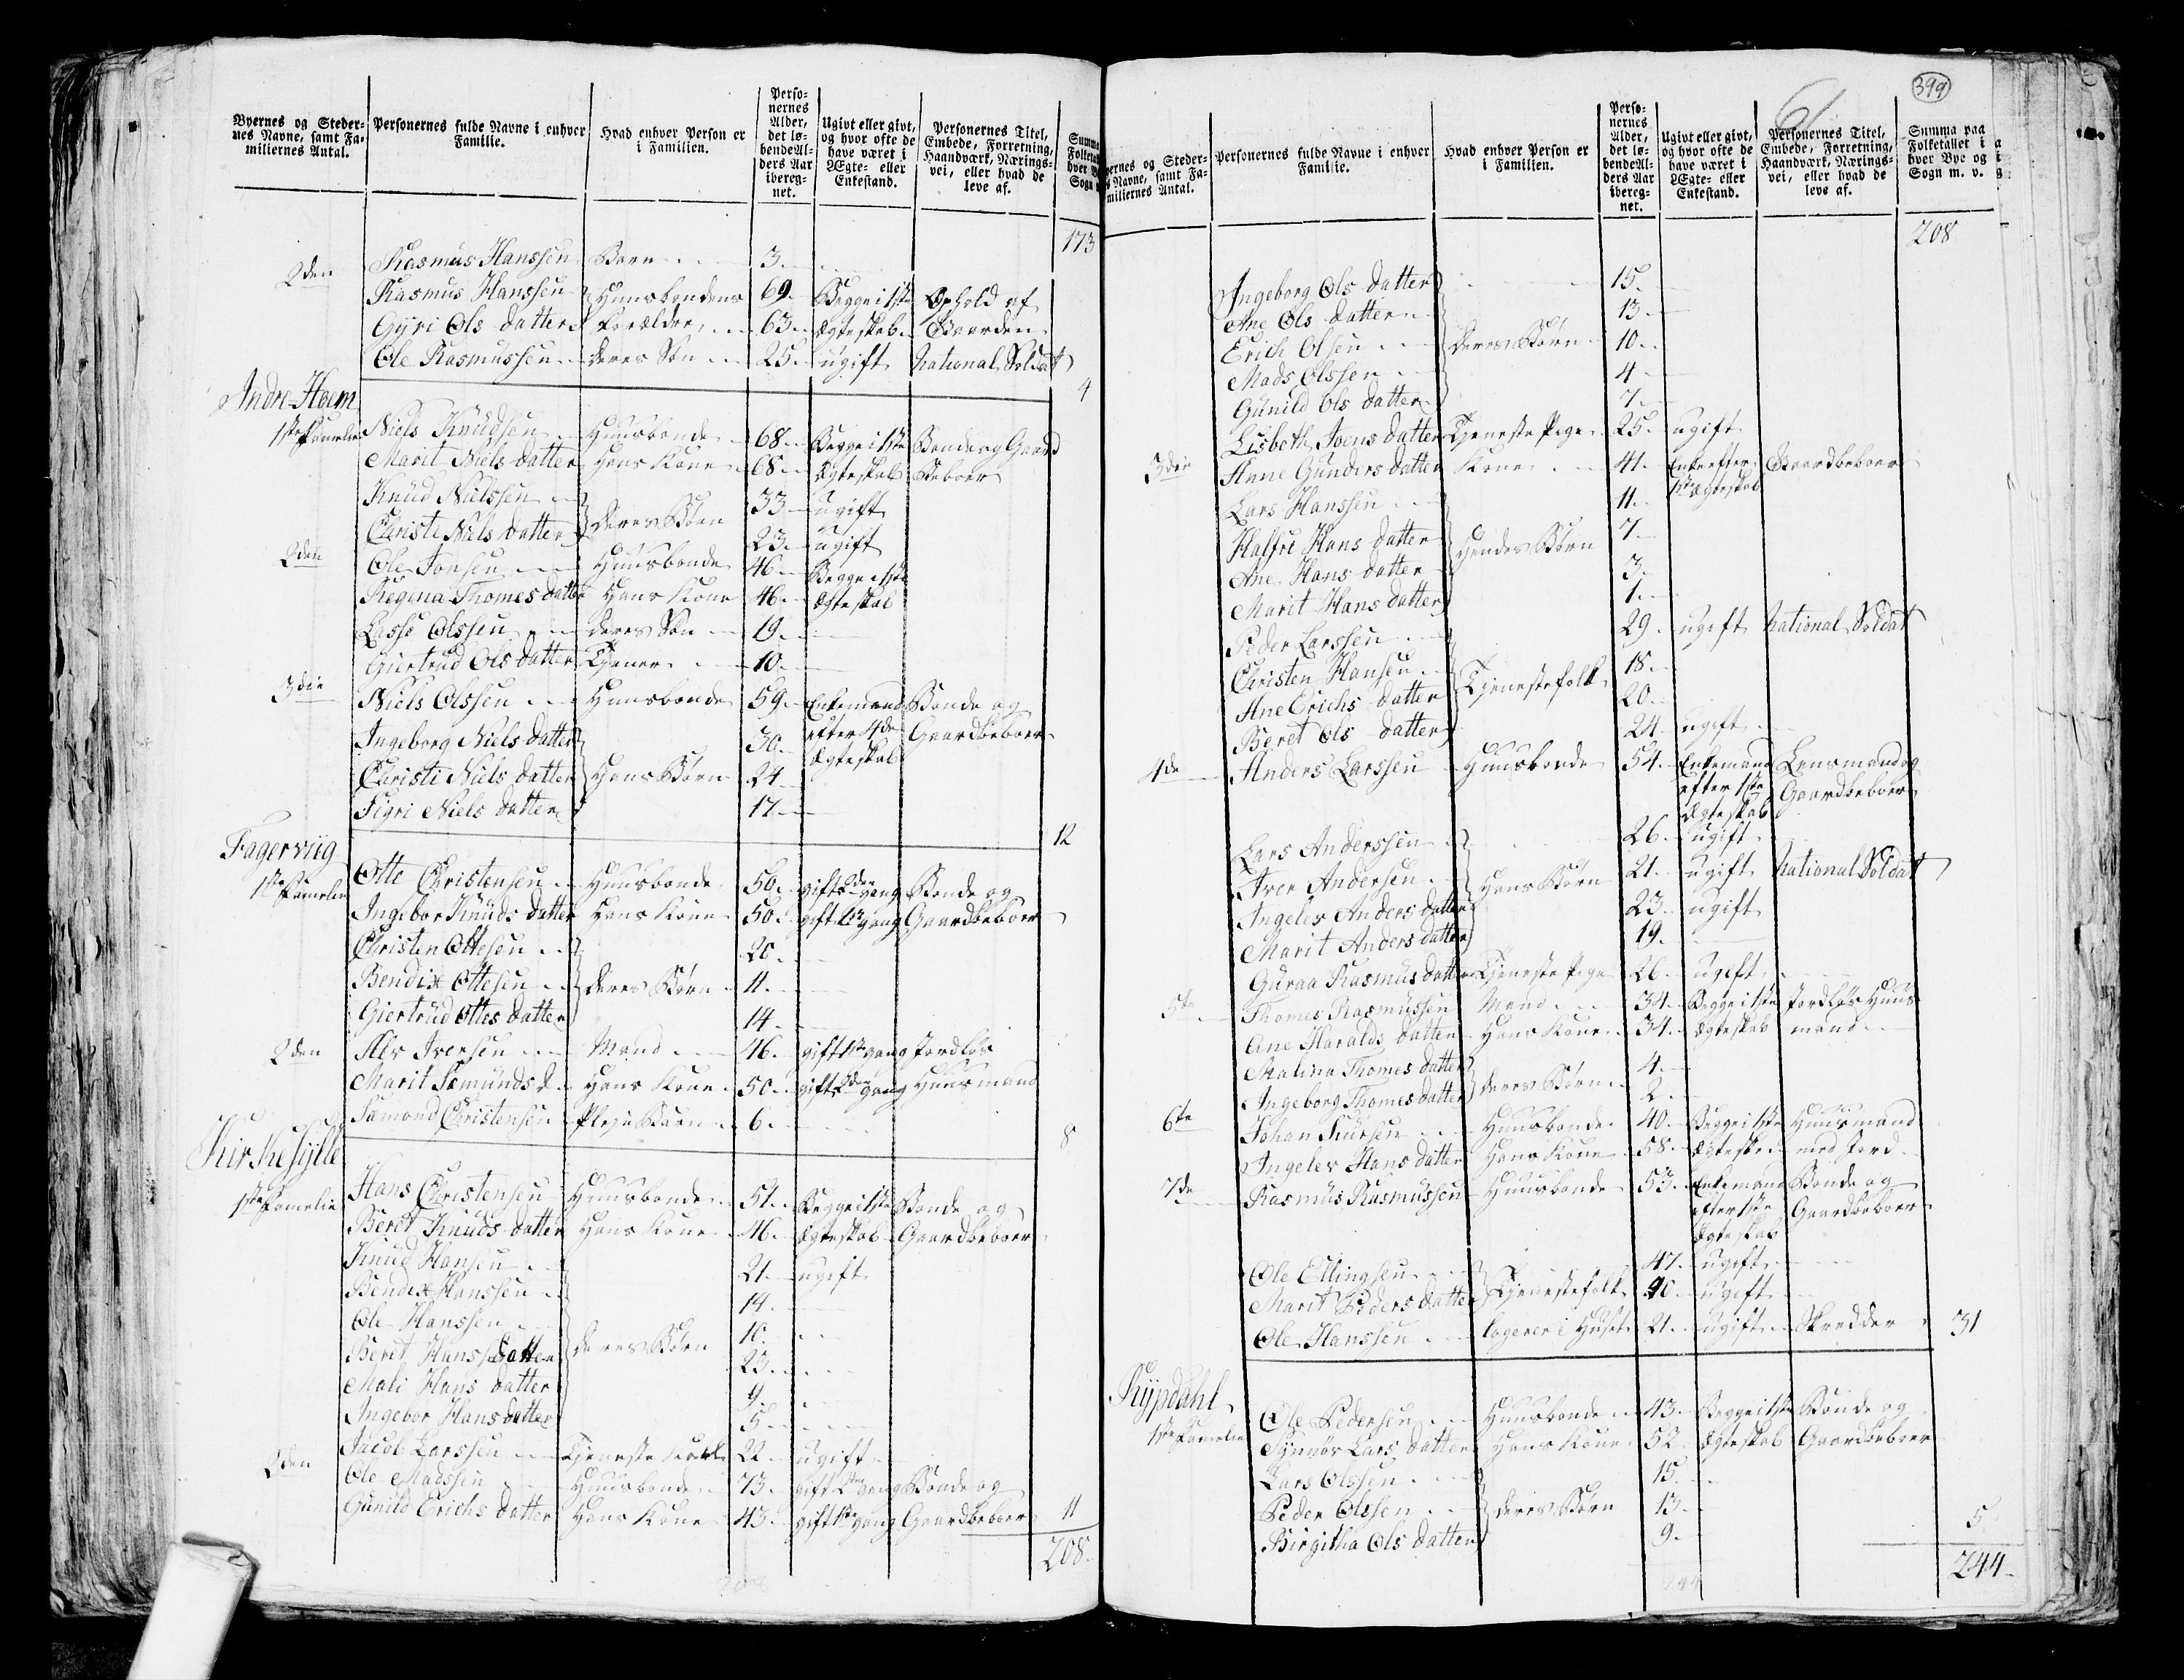 Byernes og Steder-
nes Navne, samt Fa-
miliernes Antal.
Personernes fulde Navne i enhver
Familie.
Hvad enhver Person er
i Familien.
Perso-
nernes
Alder,
det lø-
bende Al-
ders Aar
ibereg-
net.
Ugivt eller givt,
og hvor ofte de
have været i
Ægte- eller
Enkestand.
Personernes Titel,
Embede, Forretning,
Haandværk, Nærings-
vei, eller hvad de
leve af.
Summa
Folketal
hver B
Sogn
173
Rasmus Hanssen Barn 3
2den Rasmus Hanssen Huusbondens 69 Begge i 1ste Ophold af
Gyri Ols datter Forældre 63 Ægteskab Gaarden
Ole Rasmussen deres Søn 25 ugift National Soldat
4
Indre Hoem
1ste Familie Niels Knudsen Huusbonde 68 Begge i 1ste Bonde og Gaard
Marit Niels datter Hans Kone 68 Ægteskab Beboer
Knud Nielssen 33 ugift
Christi Niels datter deres Børn 23 ugift
2den Ole Jonsen Huusbonde 46 Begge i 1ste
Regina Thomes datter Hans Kone 46 Ægteskab
Lasse Olssen deres Søn 19
Giertrud Ols datter Tjener 10
3die Niels Olssen Huusbonde 59 Enkemand Bonde og
Ingeborg Niels datter 30 efter 4de Gaardbeboer
Christi Niels datter Hans Børn 24 Ægteskab
Sigri Niels datter 17
12
Fagerviig
1ste Familie Otte Christensen Huusbonde 50 gift 2den gang Bonde og
Ingebor Knuds datter Hans Kone 50 gift 1ste gang Gaardbeboer
Christen Ottesen 20
Bendix Ottesen deres Børn 11
Giertrud Ottes datter 14
2den Alv Iversen Mand 46 gift 1ste gang Jordløs
Marit Semunds d. Hans Kone 50 gift 2den gang Huusmand
Samond Christensen Pleje Barn 6
8
Kirkesylte
1ste Familie Hans Christensen Huusbonde 51 Begge i 1ste Bonde og
Beret Knuds datter Hans Kone 46 Ægteskab Gaardbeboer
Knud Hansen 21 ugift
Bendix Hanssen 14
Ole Hanssen 10
Beret Hans datter deres Børn 23
Mali Hans datter 9
Ingebor Hans datter 5
Jacob Larssen Tjeneste Karl 22 ugift
2den Ole Madssen Huusbonde 73 gift gang Bonde og
Gunild Erichs datter Hans Kone 43 gift 1ste gang Gaardbeboer
11
208
208
399
61
yernes og Steder-
s Navne, samt Fa-
miliernes Antal.
Personernes fulde Navne i enhver
Familie.
Hvad enhver Person er
i Familien.
Perso-
nernes
Alder,
det lø-
bende Al-
ders Aar
ibereg-
net.
Ugivt eller givt,
og hvor ofte de
have været i
Ægte- eller
Enkestand.
Personernes Titel,
Embede, Forretning,
Haandværk, Nærings-
vei, eller hvad de
leve af.
Summa paa
Folketallet i
hver Bye og i
Sogn m. v.
208
Ingeborg Ols datter 15
Ane Ols datter 13
Erich Olsen deres Børn 10
Mads Olssen 4
Gunild Ols datter 7
Lisbeth Joens datter Tjeneste Pige 25 ugift
3die Anne Gunders datter Kone 41 Enke efter Gaardbeboer
1ste Ægteskab
Lars Hanssen 11
Halfri Hans datter 7
Ane Hans datter Hendes Børn 3
Marit Hans datter 1
Peder Larssen 29 ugift National Soldat
Christen Hansen 18
Ane Erichs datter Tjenestefolk 20
Beret Ols datter 24 ugift
4de Anders Larssen Huusbonde 54 Enkemand Lensmand og
efter 1ste Gaardbeboer
Ægteskab
Lars Anderssen 26 ugift
Iver Andersen Hans Børn 21 ugift National Soldat
Ingelev Anders datter 23 ugift
Marit Anders datter 19
Guraa Rasmus datter Tjeneste Pige 26 ugift
5te Thomes Rasmussen Mand 34 Begge i 1ste Jordløs Huus
Ane Haralds datter Hans Kone 34 Ægteskab mand
Malina Thomes datter 4
Ingeborg Thomes datter deres Børn 2
6te Johan Huusbonde 40 Begge i 1ste Huusmand
Ingelev Hans datter Hans Kone 58 Ægteskab med Jord
7de Rasmus Rasmussen Huusbonde 53 Enkemand Bonde og
efter 1ste Gaardbeboer
Ægteskab
Ole Ellingsen 47 ugift
Marit Peders datter Tjenestefolk 40 ugift
Ole Hanssen logerer i Huset 21 ugift Skredder
31
Rypdahl
1ste Familie Ole Pedersen Huusbonde 43 Begge i 1ste Bonde og
Synnøv Lars datter Hans Kone 52 Ægteskab Gaardbeboer
Lars Olssen 15
Peder Olssen deres Børn 13
Birgitha Ols datter 9
5
244
244